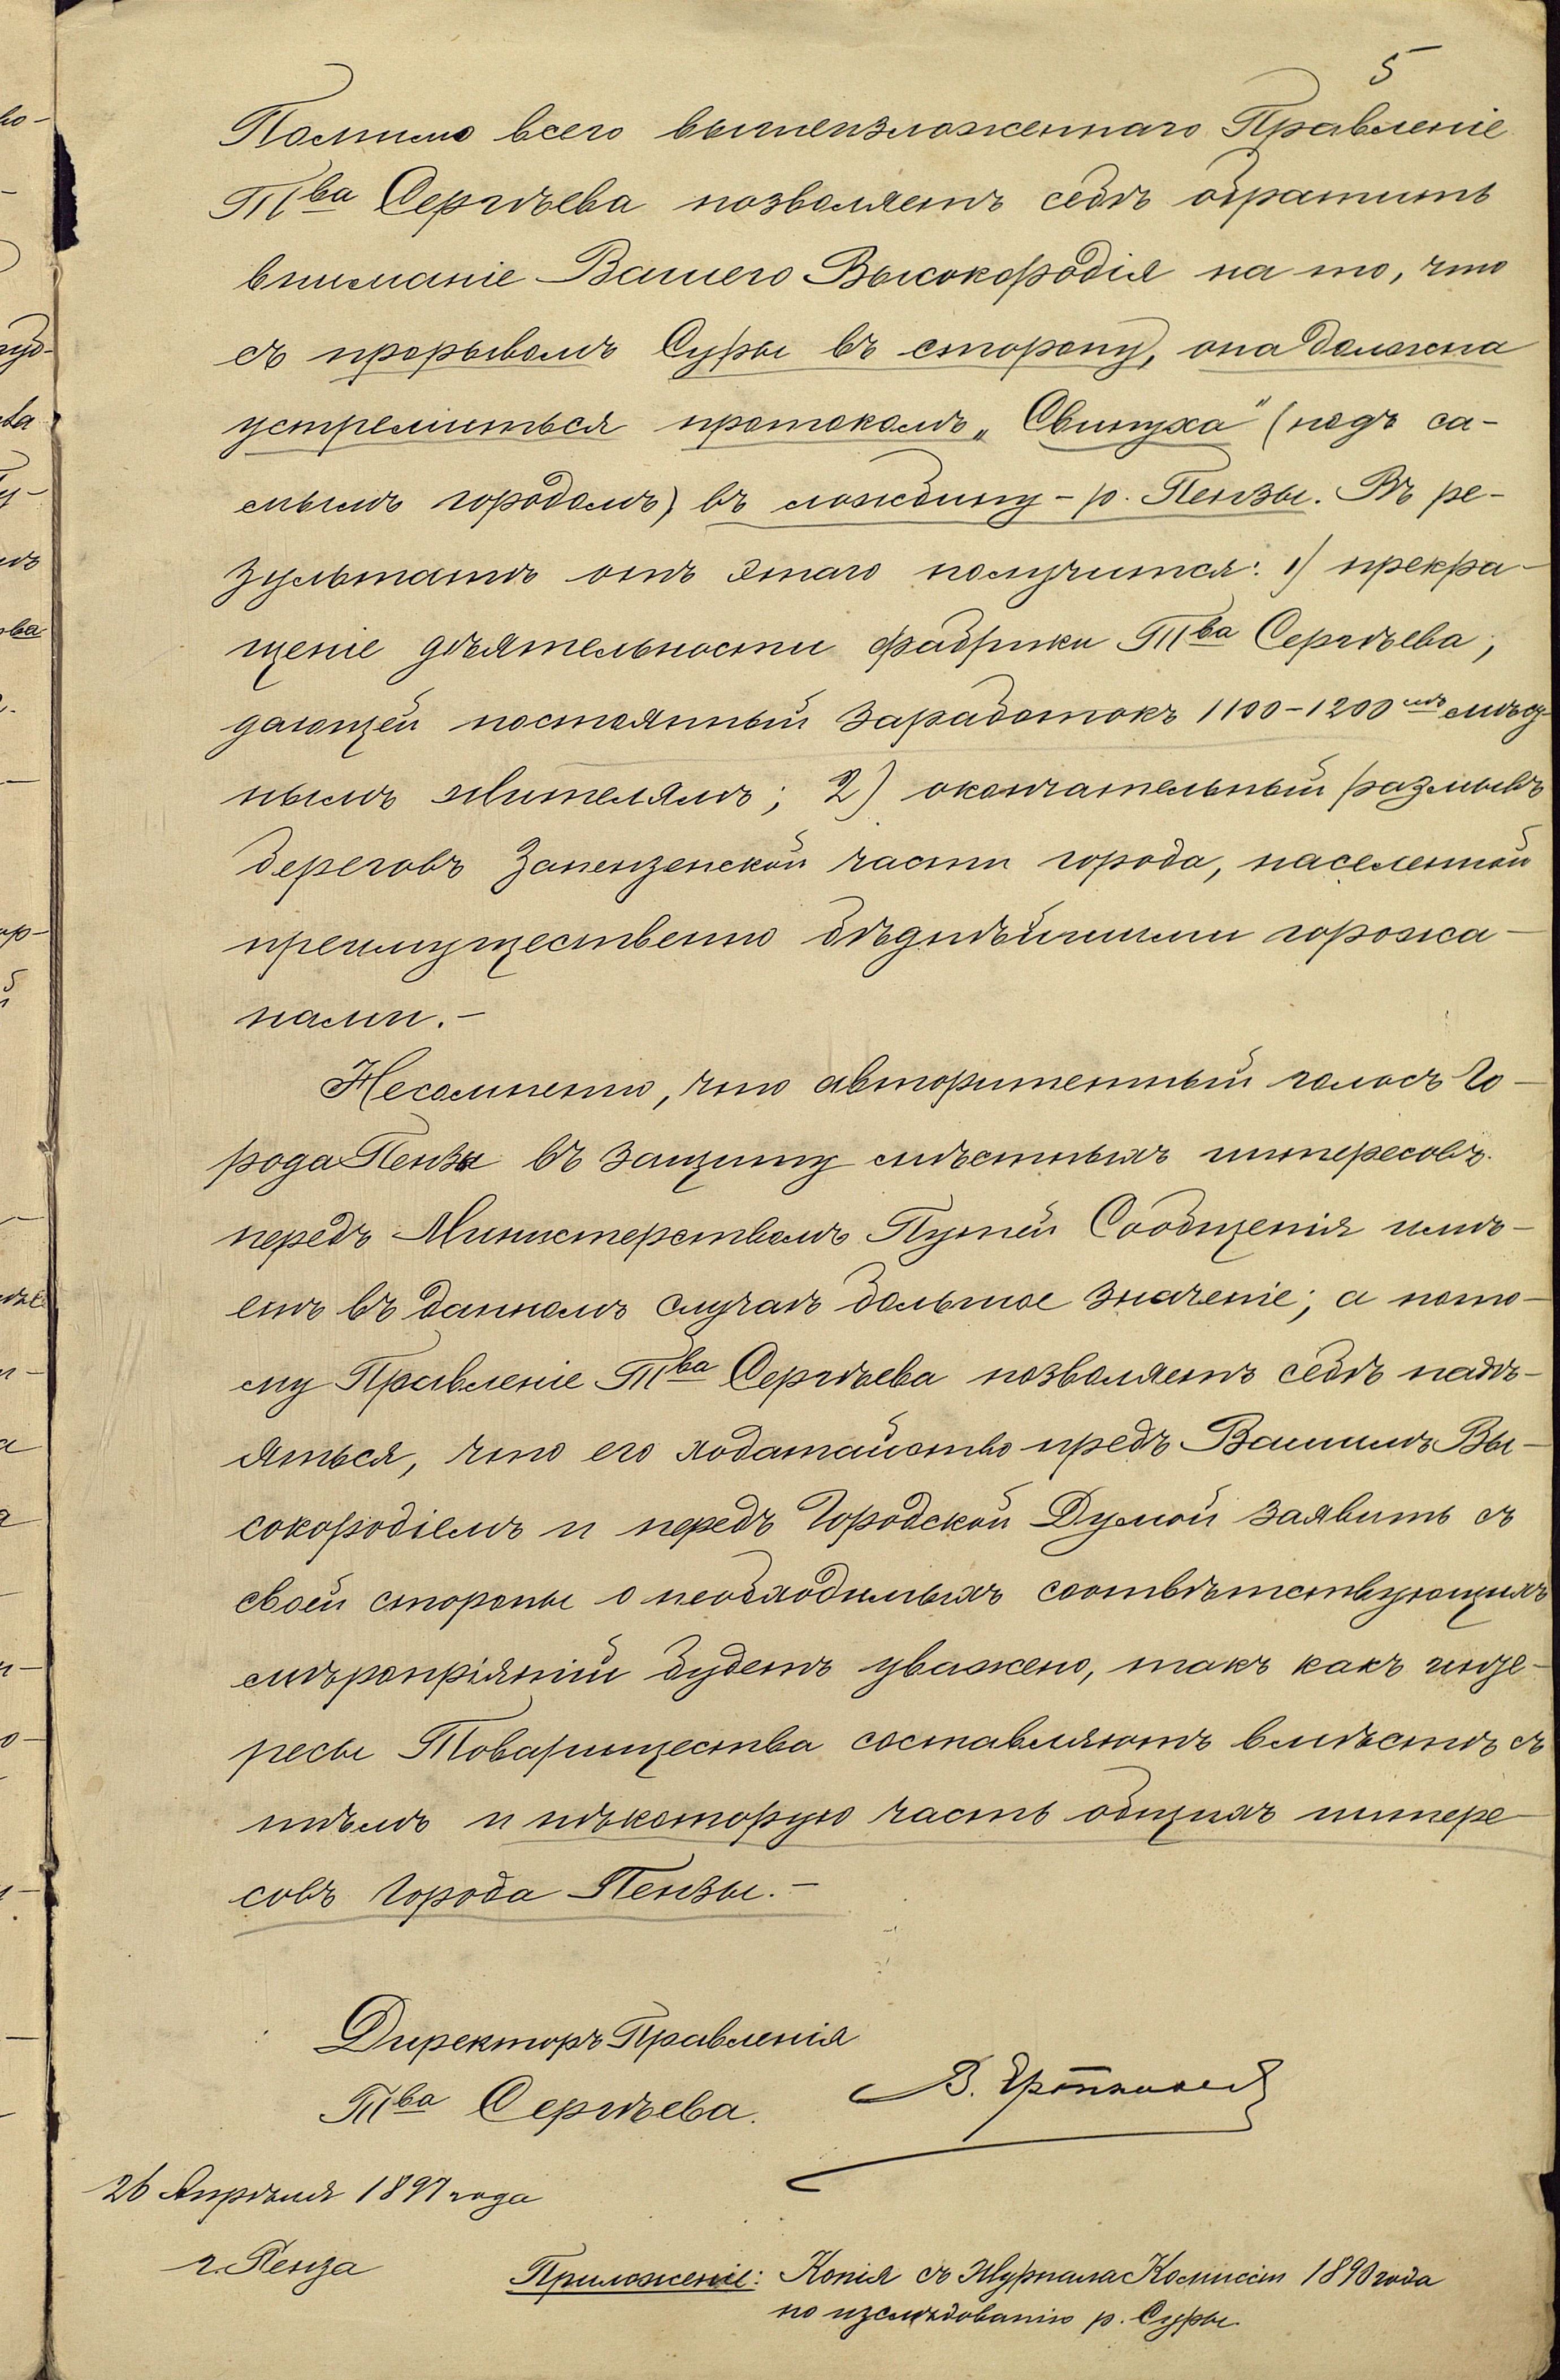 5
Помимо всего вышеизложеннаго Правленіе
Т<sup>ва</sup> Сергѣева позволяетъ себѣ обратить
вниманіе Вашего Высокородія на то, что
съ прорывомъ Суры въ сторону, она должна
устремиться протокомъ „Свинуха" (подъ са-
мымъ городомъ) въ ложбину - р. Пензы. Въ ре-
зультатѣ отъ этаго получится: 1) прекра-
щеніе дѣятельности фабрики Т<sup>ва</sup> Сергѣева,
дающей постоянный заработокъ 1100-1200<sup>мъ</sup> мѣст-
нымъ жителямъ; 2) окончательный размывъ
береговъ Запензенской части города, населенной
преимущественно бѣднѣйшими горожа-
нами.-
Несомненно, что авторитетный голосъ Го-
рода Пензы въ защиту мѣстныхъ интересовъ
передъ Министерствомъ Путей Сообщенія имѣ-
етъ въ данномъ случаѣ большое значеніе; а пото-
му Правленіе Т<sup>ва</sup> Сергѣева позволяетъ себѣ надѣ-
яться, что его ходатайство предъ Вашимъ Вы-
сокородіемъ и передъ Городской Думой заявить съ
своей стороны о необходимыхъ соотвѣтствующихъ
мѣропріятій будетъ уважено, такъ какъ инте-
ресы Товарищества составляютъ вмѣстѣ съ
тѣмъ и нѣкоторую часть общихъ интере-
совъ Города Пензы.-
Директоръ Правленія
Т<sup>ва</sup> Сергѣева.
В.
26 Апрѣля 1897 года
г. Пенза
Приложеніе: Копія съ Журнала Комиссіи 1890 года
по изслѣдованію р. Суры.